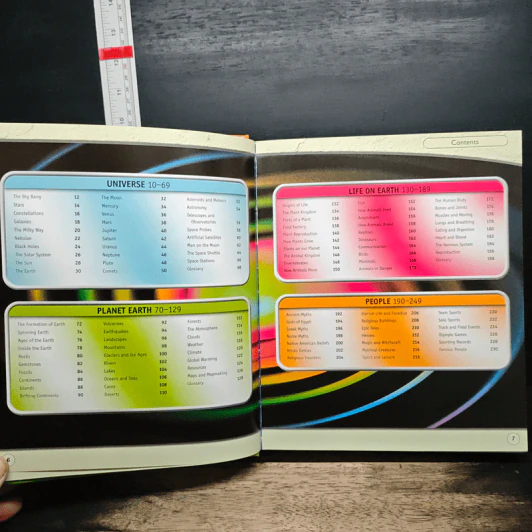 Contents
UNIVERSE 10–69
The Big Bang 12
Stars 14
Constellations 16
Galaxies 18
The Milky Way 20
Nebulae 22
Black Holes 24
The Solar System 26
The Sun 28
The Earth 30
The Moon 32
Mercury 34
Venus 36
Mars 38
Jupiter 40
Saturn 42
Uranus 44
Neptune 46
Pluto 48
Comets 50
Asteroids and Meteors 52
Astronomy 54
Telescopes and
Observatories
Space Probes
Artificial Satellites
Man on the Moon
The Space Shuttle
Space Stations
Glossary
PLANET EARTH 70–129
The Formation of Earth 72
Spinning Earth 74
Ages of the Earth 76
Inside the Earth 78
Rocks 80
Gemstones 82
Fossils 84
Continents 86
Islands 88
Drifting Continents 90
Volcanoes 92
Earthquakes 94
Landscapes 96
Mountains 98
Glaciers and Ice Ages 100
Rivers 102
Lakes 104
Oceans and Seas 106
Caves 108
Deserts 110
Forests 112
The Atmosphere 114
Clouds
Weather
Climate
Global Warming
Resources
Maps and Mapmaking
Glossary
LIFE ON EARTH 130–189
Origins of Life 132
The Plant Kingdom 134
Parts of a Plant 136
Food Factory 138
Plant Reproduction 140
How Plants Grow 142
Plants on our Planet 144
The Animal Kingdom 146
Invertebrates 148
How Animals Move 150
Fish
How Animals Feed
Amphibians
How Animals Breed
Reptiles
Dinosaurs
Communication
Birds
Mammals
Animals in Danger
The Human Body 172
Bones and Joints 174
Muscles and Moving 176
Lungs and Breathing 178
Eating and Digestion 180
Heart and Blood 182
The Nervous System 184
Reproduction 186
Glossary 188
PEOPLE 190–249
Ancient Myths 192
Gods of Egypt 194
Greek Myths 196
Norse Myths 198
Native American Beliefs 200
Hindu Deities 202
Religious Founders 204
Eternal Life and Paradise 206
Religious Buildings 208
Epic Tales 210
Heroes 212
Magic and Witchcraft 214
Mythical Creatures 216
Sport and Leisure 218
Team Sports 220
Solo Sports 222
Track and Field Events 224
Olympic Games 226
Sporting Records 228
Famous People 230
6
7